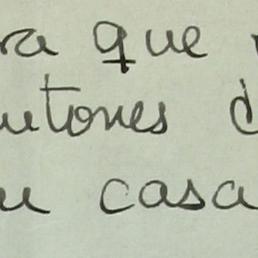 ra que
utones d
u casa